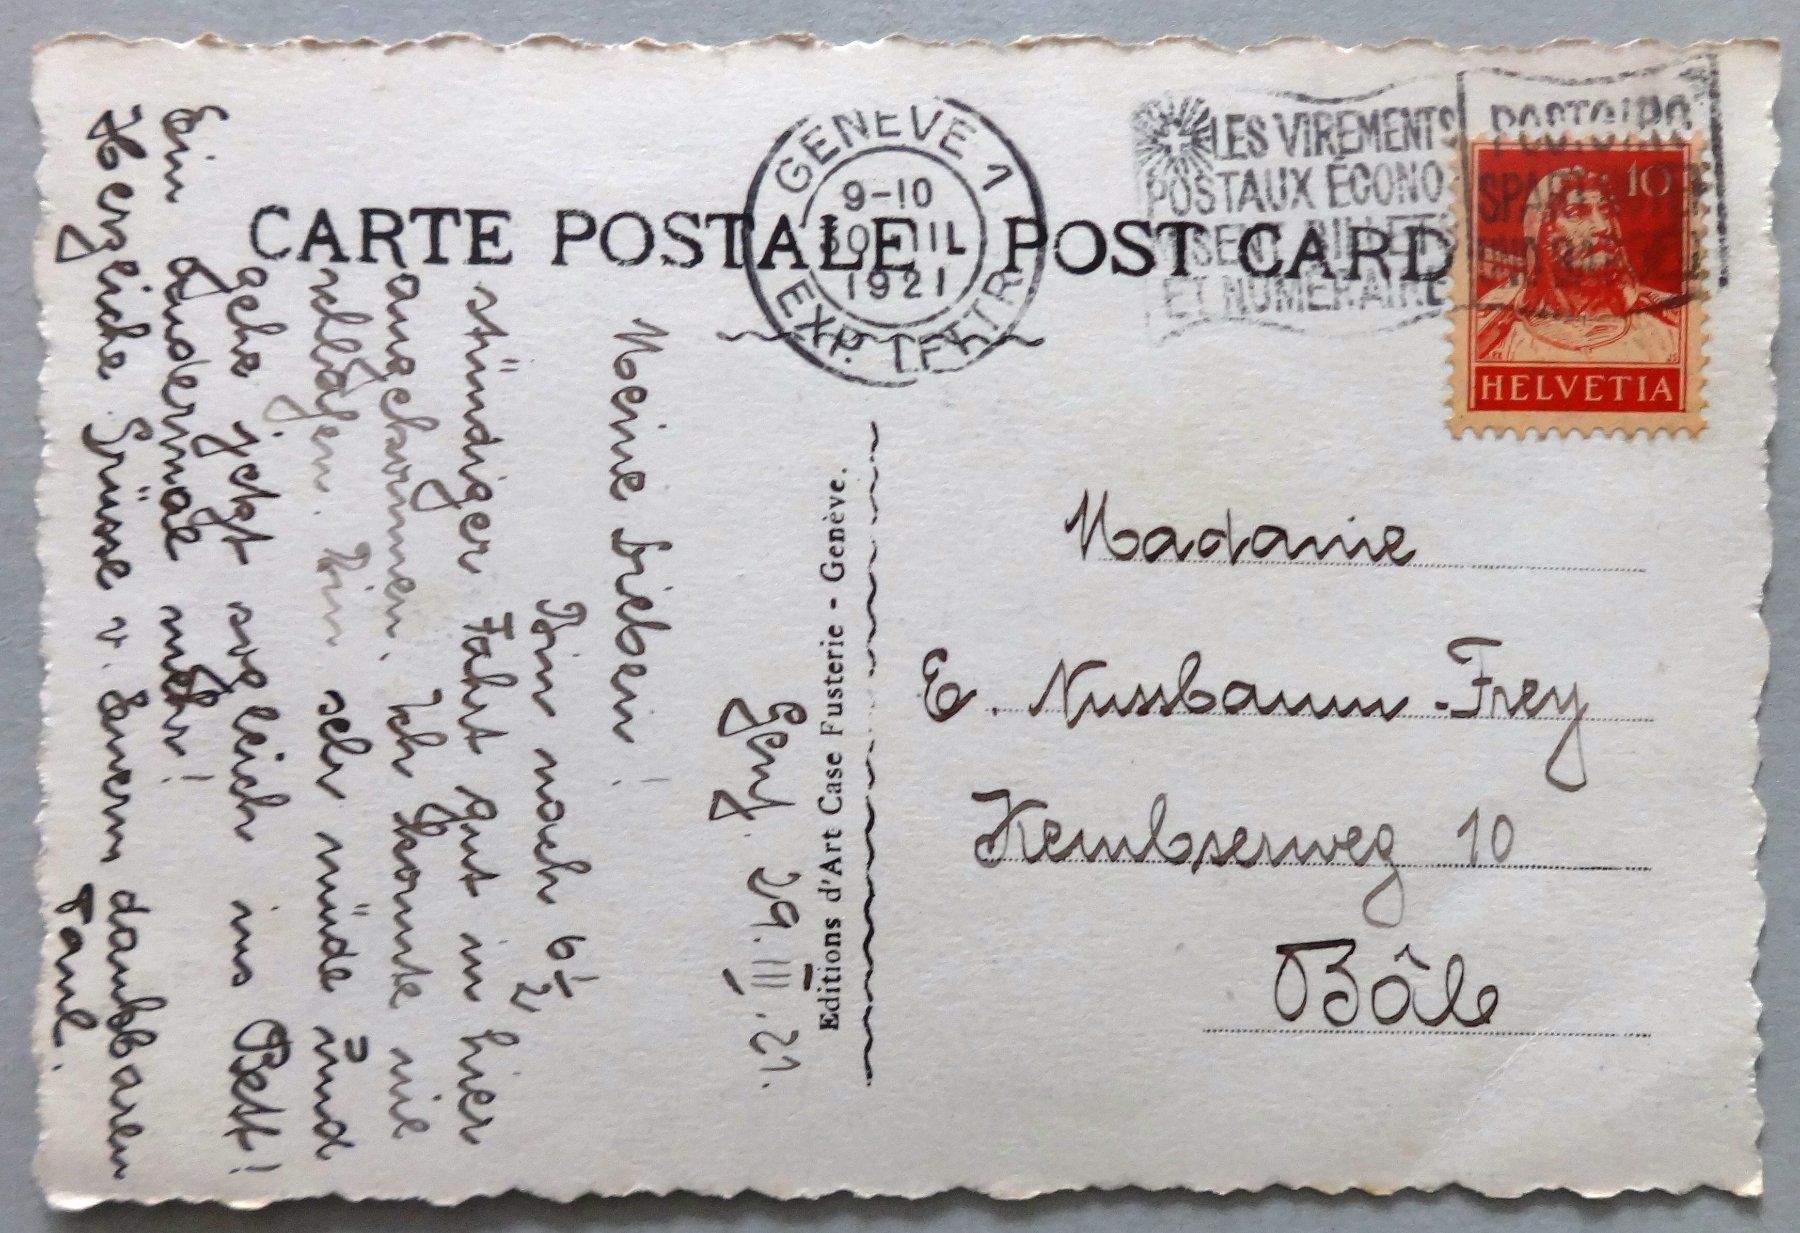 CARTE POSTALE POST CARD
GENÈVE 1
9-10
1921
EXP. LETTR
LES VIREMENTS
POSTAUX ÉCONO
ET NUMÉRAIRE
10
HELVETIA
Madame
E. Nussbaum-Frey
Kembserweg 10
Bâle
Editions d'Art Case Fusterie - Genève.
Genf. 29. III. 21.
Meine Lieben!
Bin nach 6 1/2
stündiger Fahrt gut in hier
angekommen. Ich konnte nie
schlafen. Bin sehr müde und
gehe jetzt sogleich ins Bett!
Ein andermal mehr!
Herzliche Grüsse v. Eurem dankbaren
Paul.